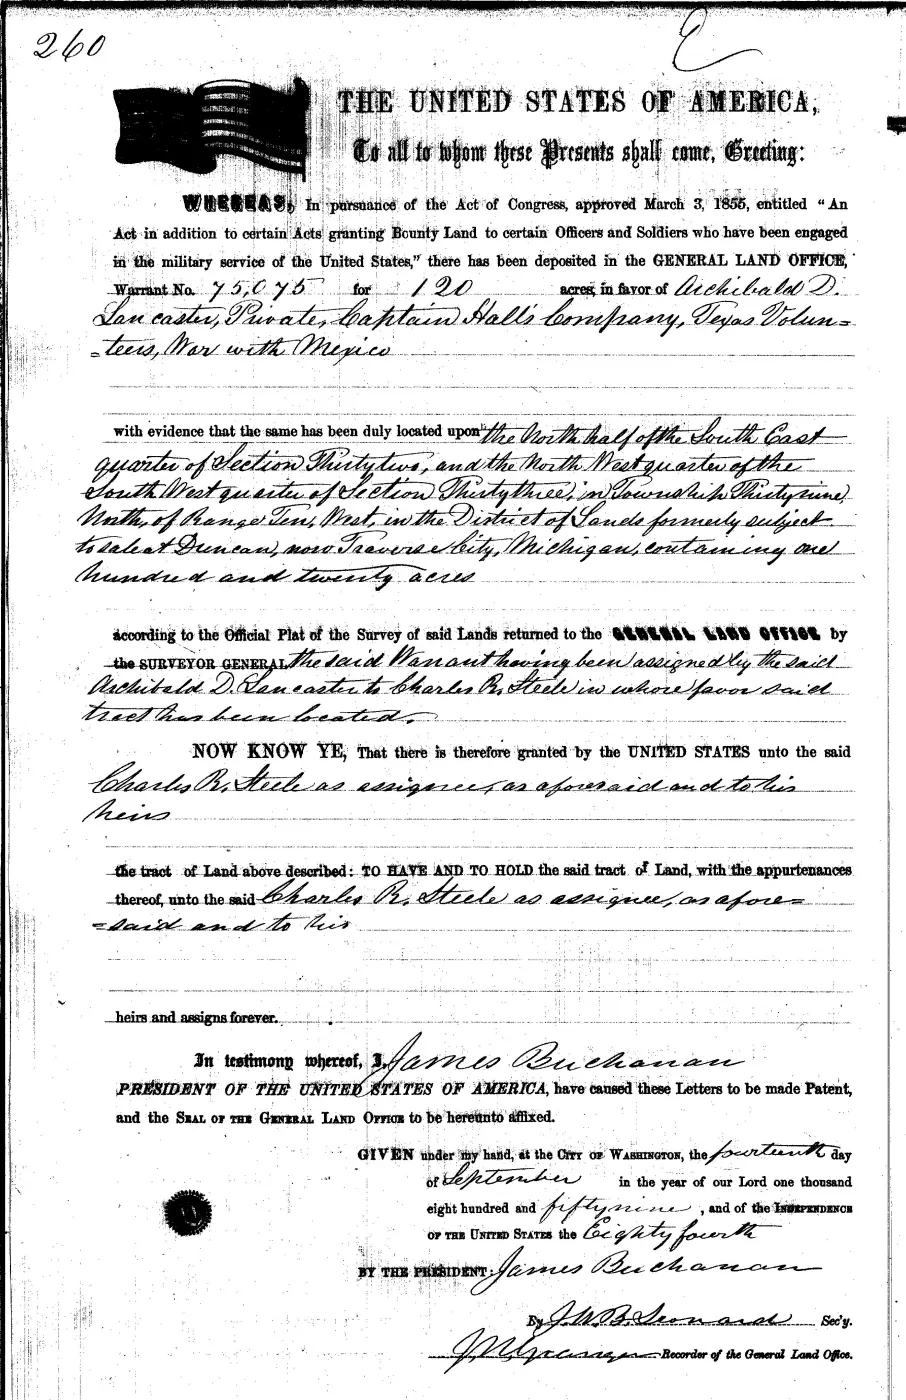 260
THE UNITED STATES OF AMERICA,
To all to whom these Presents shall come, Greeting:
WHEREAS, In pursuance of the Act of Congress, approved March 3, 1855, entitled "An
Act in addition to certain Acts granting Bounty Land to certain Officers and Soldiers who have been engaged
in the military service of the United States," there has been deposited in the GENERAL LAND OFFICE,
Warrant No. 75,075 for 120 acres, in favor of Archibald D.
Lancaster, Private, Captain Hall's Company, Texas Volun=
=teers, War with Mexico
with evidence that the same has been duly located upon the North half of the South East
quarter of Section Thirty two, and the North West quarter of the
South West quarter of Section Thirty three, in Township Thirty nine
North, of Range Ten, West, in the District of Lands formerly subject
to sale at Duncan, now Traverse City, Michigan, containing one
hundred and twenty acres
according to the Official Plat of the Survey of said Lands returned to the GENERAL LAND OFFICE by
the SURVEYOR GENERAL the said Warrant having been assigned by the said
Archibald D. Lancaster to Charles R. Steele in whose favor said
tract has been located.
NOW KNOW YE, That there is therefore granted by the UNITED STATES unto the said
Charles R. Steele as assignee, as aforesaid and to his
heirs
the tract of Land above described: TO HAVE AND TO HOLD the said tract of Land, with the appurtenances
thereof, unto the said Charles R. Steele as assignee, as afore=
=said and to his
heirs and assigns forever.
In testimony whereof, I, James Buchanan
PRESIDENT OF THE UNITED STATES OF AMERICA, have caused these Letters to be made Patent,
and the SEAL OF THE GENERAL LAND OFFICE to be hereunto affixed.
GIVEN under my hand, at the CITY OF WASHINGTON, the fourteenth day
of September in the year of our Lord one thousand
eight hundred and fifty nine, and of the INDEPENDENCE
OF THE UNITED STATES the Eighty fourth
BY THE PRESIDENT: James Buchanan
By J. W. B. Leonard Sec'y.
J. N. Granger Recorder of the General Land Office.